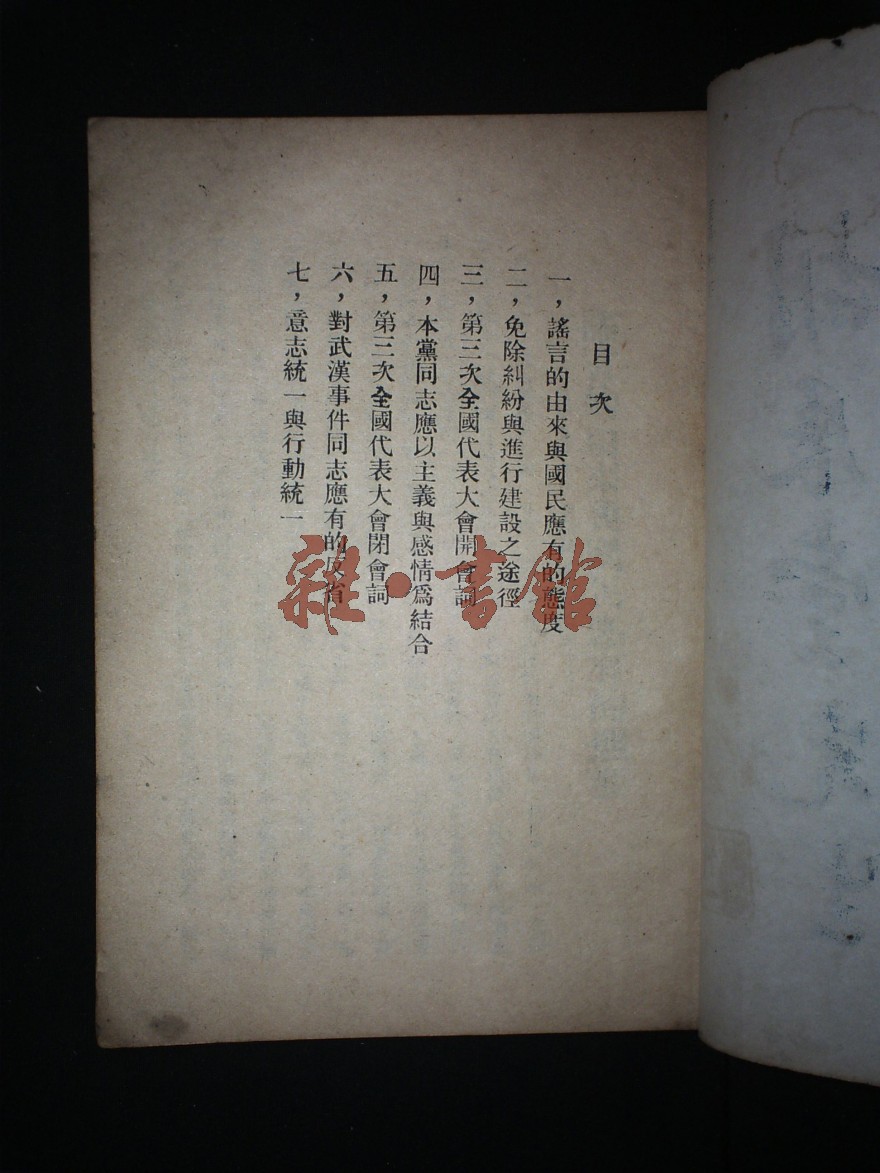 目次
一，謠言的由來與國民應有的態度
二，免除糾紛與進行建設之途徑
三，第三次全國代表大會開會詞
四，本黨同志應以主義與感情爲結合
五，第三次全國代表大會閉會詞
六，對武漢事件同志應有的反省
七，意志統一與行動統一
雜·書館